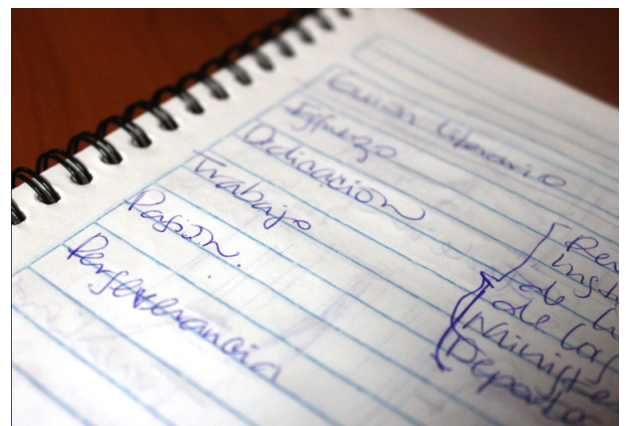 Guión literario
Esfuerzo
Dedicación
Trabajo
Pasión.
Perseverancia
de
de las